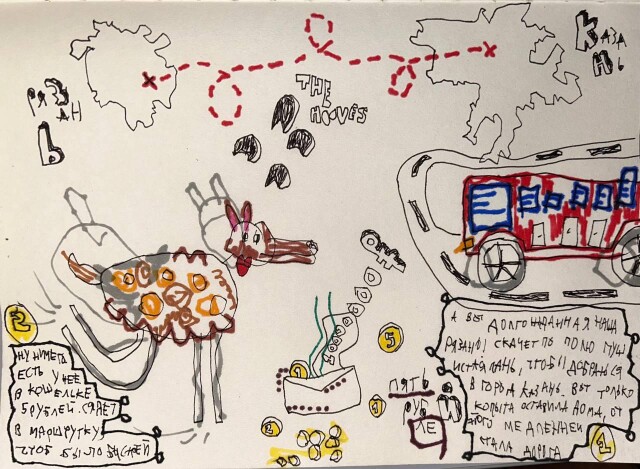 РЯЗАНЬ
КАЗАНЬ
THE
HOOVES
А ВЫ ДОЛГОЖДАННАЯ НАША
СКАЧЕТ ПО ПОЛЮ
ЛАНЬ, ЧТОБЫ ДОБРАТЬСЯ
В ГОРОД КАЗАНЬ. ВОТ ТОЛЬКО
КОПЫТА ОСТАВИЛА ДОМА, ОТ
ЭТОГО МЕДЛЕННЕЙ
СТАЛА ДОРОГА
1
2
НУ НИЧЕГО
ЕСТЬ У НЕЕ
В КОШЕЛЬКЕ
5 РУБЛЕЙ. СЯДЕТ
В МАРШРУТКУ
ЧТОБ БЫЛО
5
1
ПЯТЬ